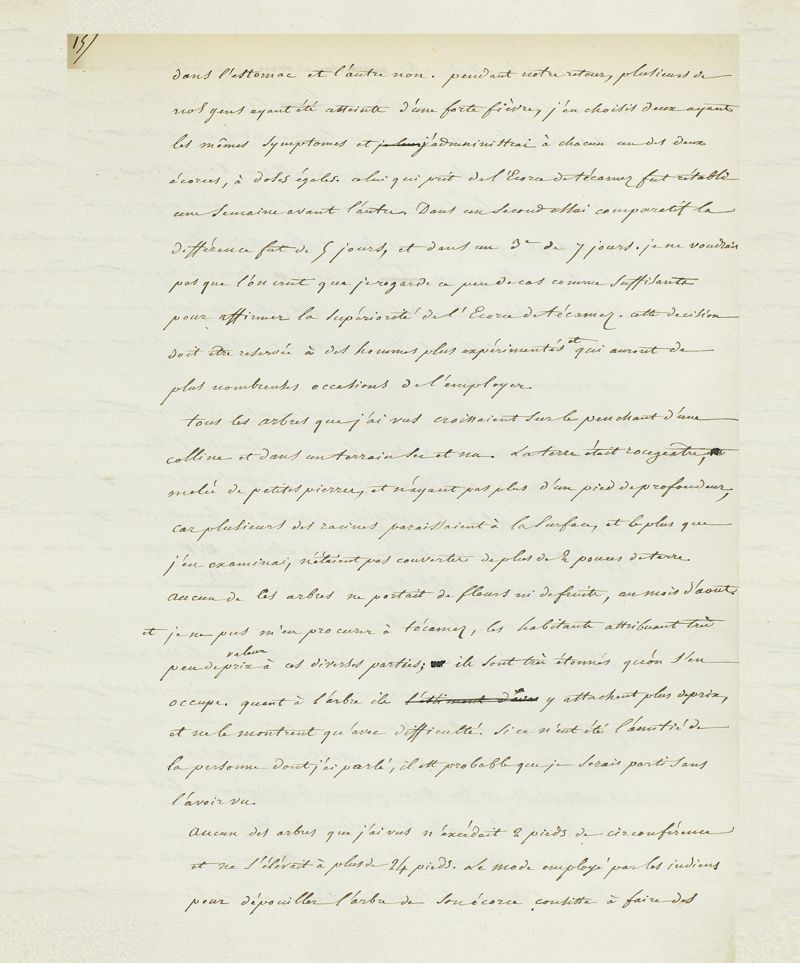 15/
dans l'estomac et l'autre non. pendant notre retour, plusieurs de
nos gens ayant été atteints d'une forte fièvre, j'en choisis deux ayant
les mêmes symptomes et j'administrai à chacun un des deux
écorces, à doses égales. celui qui prit de l'Ecorce de técamez fut rétabli
une semaine avant l'autre. Dans un second essai comparatif la
différence fut de 5 jours, et dans un 3e de 7 jours. je ne voudrais
pas que l'on crut que je regarde ce peu de cas comme suffisants
pour affirmer la supériorété de l'Ecorce de técamez. cette decision
doit être reservée à des hommes plus expérimentés et qui auront de
plus nombreuses occasions de l'employer.
tous les arbres que j'ai vus croissaient sur le penchant d'une
colline et dans un terrain sec et nu. La terre était rougeatre,
melée de petites pierres, et n'ayant pas plus d'un pied de profondeur,
car plusieurs des racines paraissaient à la surface, et le plus que
j'en examinai, n'étaient pas couvertes de plus de 2 pouces de terre
aucun de ces arbres ne portait de fleurs ni de fruits, au mois d'août
et je ne pus m'en procurer à técamez, les habitants attribuant très
peu de prix valeur à ces diverses parties; ils sont très étonnés qu'on s'en
occupe. quant à l'arbre ils y attachent plus de prix,
et ne le montrent qu'avec difficulté. Si ce n'eut été l'amitié de
la personne dont j'ai parlé, il est probable que je serais parti sans
l'avoir vu.
aucun des arbres que j'ai vus n'excédait 2 pieds de circonférence
et ne s'élévait à plus de 24 pieds. Le mode employé par les indiens
pour dépouiller l'arbre de son écorce consiste à faire des